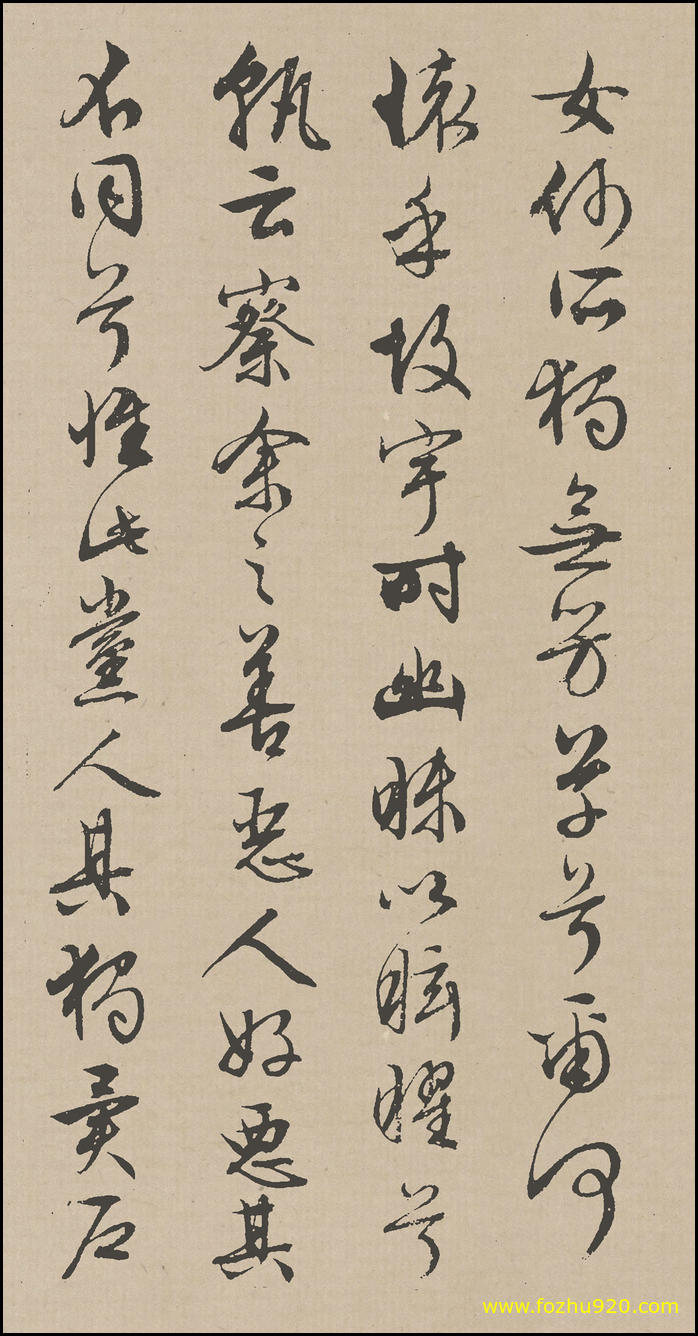 女何所獨無芳草兮爾何
懷乎故宇時幽昧以眩曜兮
孰云察余之善惡人好惡其
不同兮惟此黨人其獨異戶
www.fozhu920.com